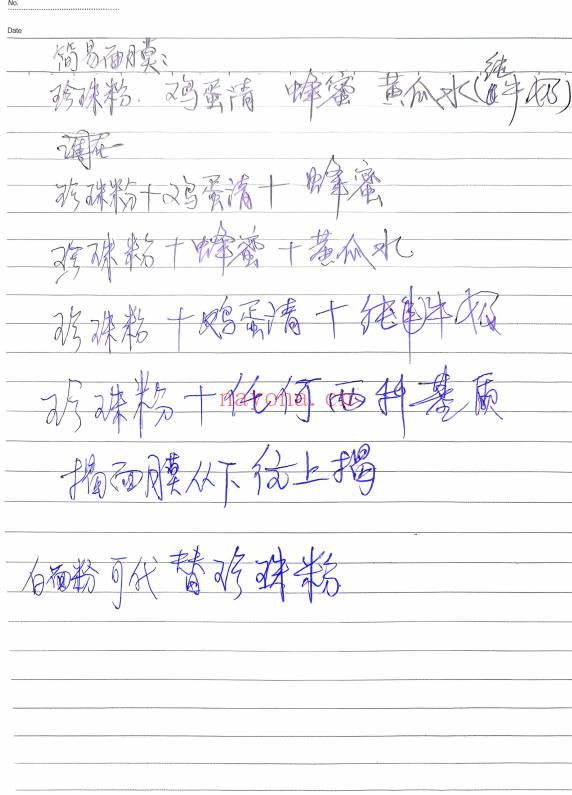 No.
Date
简易面膜：
珍珠粉. 鸡蛋清 蜂蜜 黄瓜水(纯牛奶)
调在一
珍珠粉+鸡蛋清+ 蜂蜜
珍珠粉+蜂蜜+黄瓜水
珍珠粉+鸡蛋清+纯牛奶
珍珠粉+任何两种基质
揭面膜从下往上揭
白面粉可代替珍珠粉